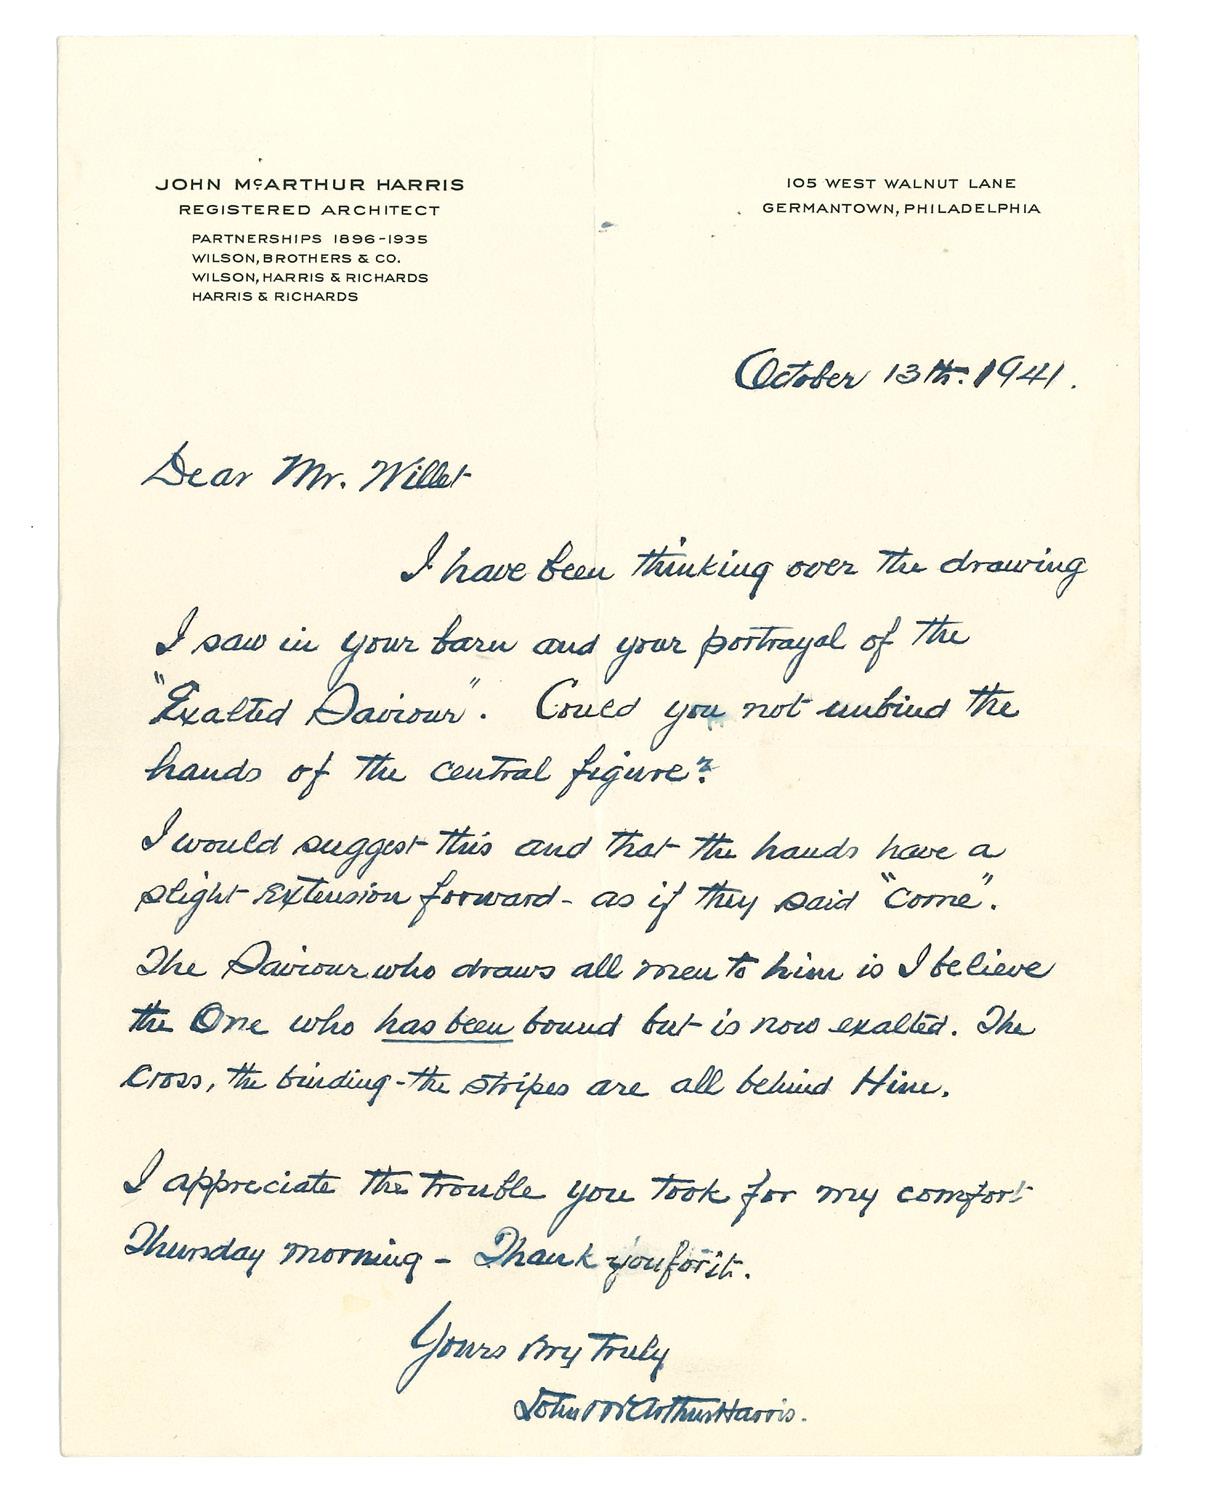 JOHN McARTHUR HARRIS
REGISTERED ARCHITECT
PARTNERSHIPS 1896-1935
WILSON, BROTHERS & CO.
WILSON, HARRIS & RICHARDS
HARRIS & RICHARDS
105 WEST WALNUT LANE
GERMANTOWN, PHILADELPHIA
October 13th. 1941.
Dear Mr. Willet
I have been thinking over the drawing
I saw in your barn and your portrayal of the
"Exalted Saviour". Could you not unbind the
hands of the central figure?
I would suggest this and that the hands have a
slight extension forward - as if they said "Come".
The Saviour who draws all men to him is I believe
the One who has been bound but is now exalted. The
cross, the binding - the stripes are all behind Him.
I appreciate the trouble you took for my comfort
Thursday morning - Thank you for it.
Yours very truly
John McArthur Harris.